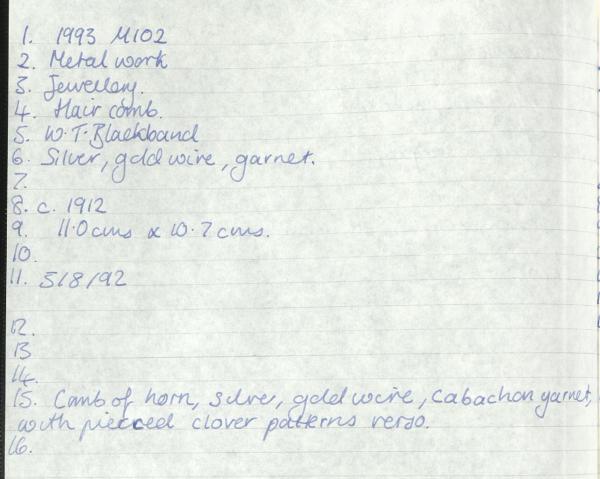 1. 1993 M102
2. Metal work
3. Jewellery.
4. Hair comb.
5. W.T. Blackband
6. Silver, gold wire, garnet.
7.
8. c. 1912
9. 11.0 cms x 10.7 cms.
10.
11. 5/8/92
12.
13
14.
15. Comb of horn, silver, gold wire, cabachon garnet,
with pierced clover patterns verso.
16.